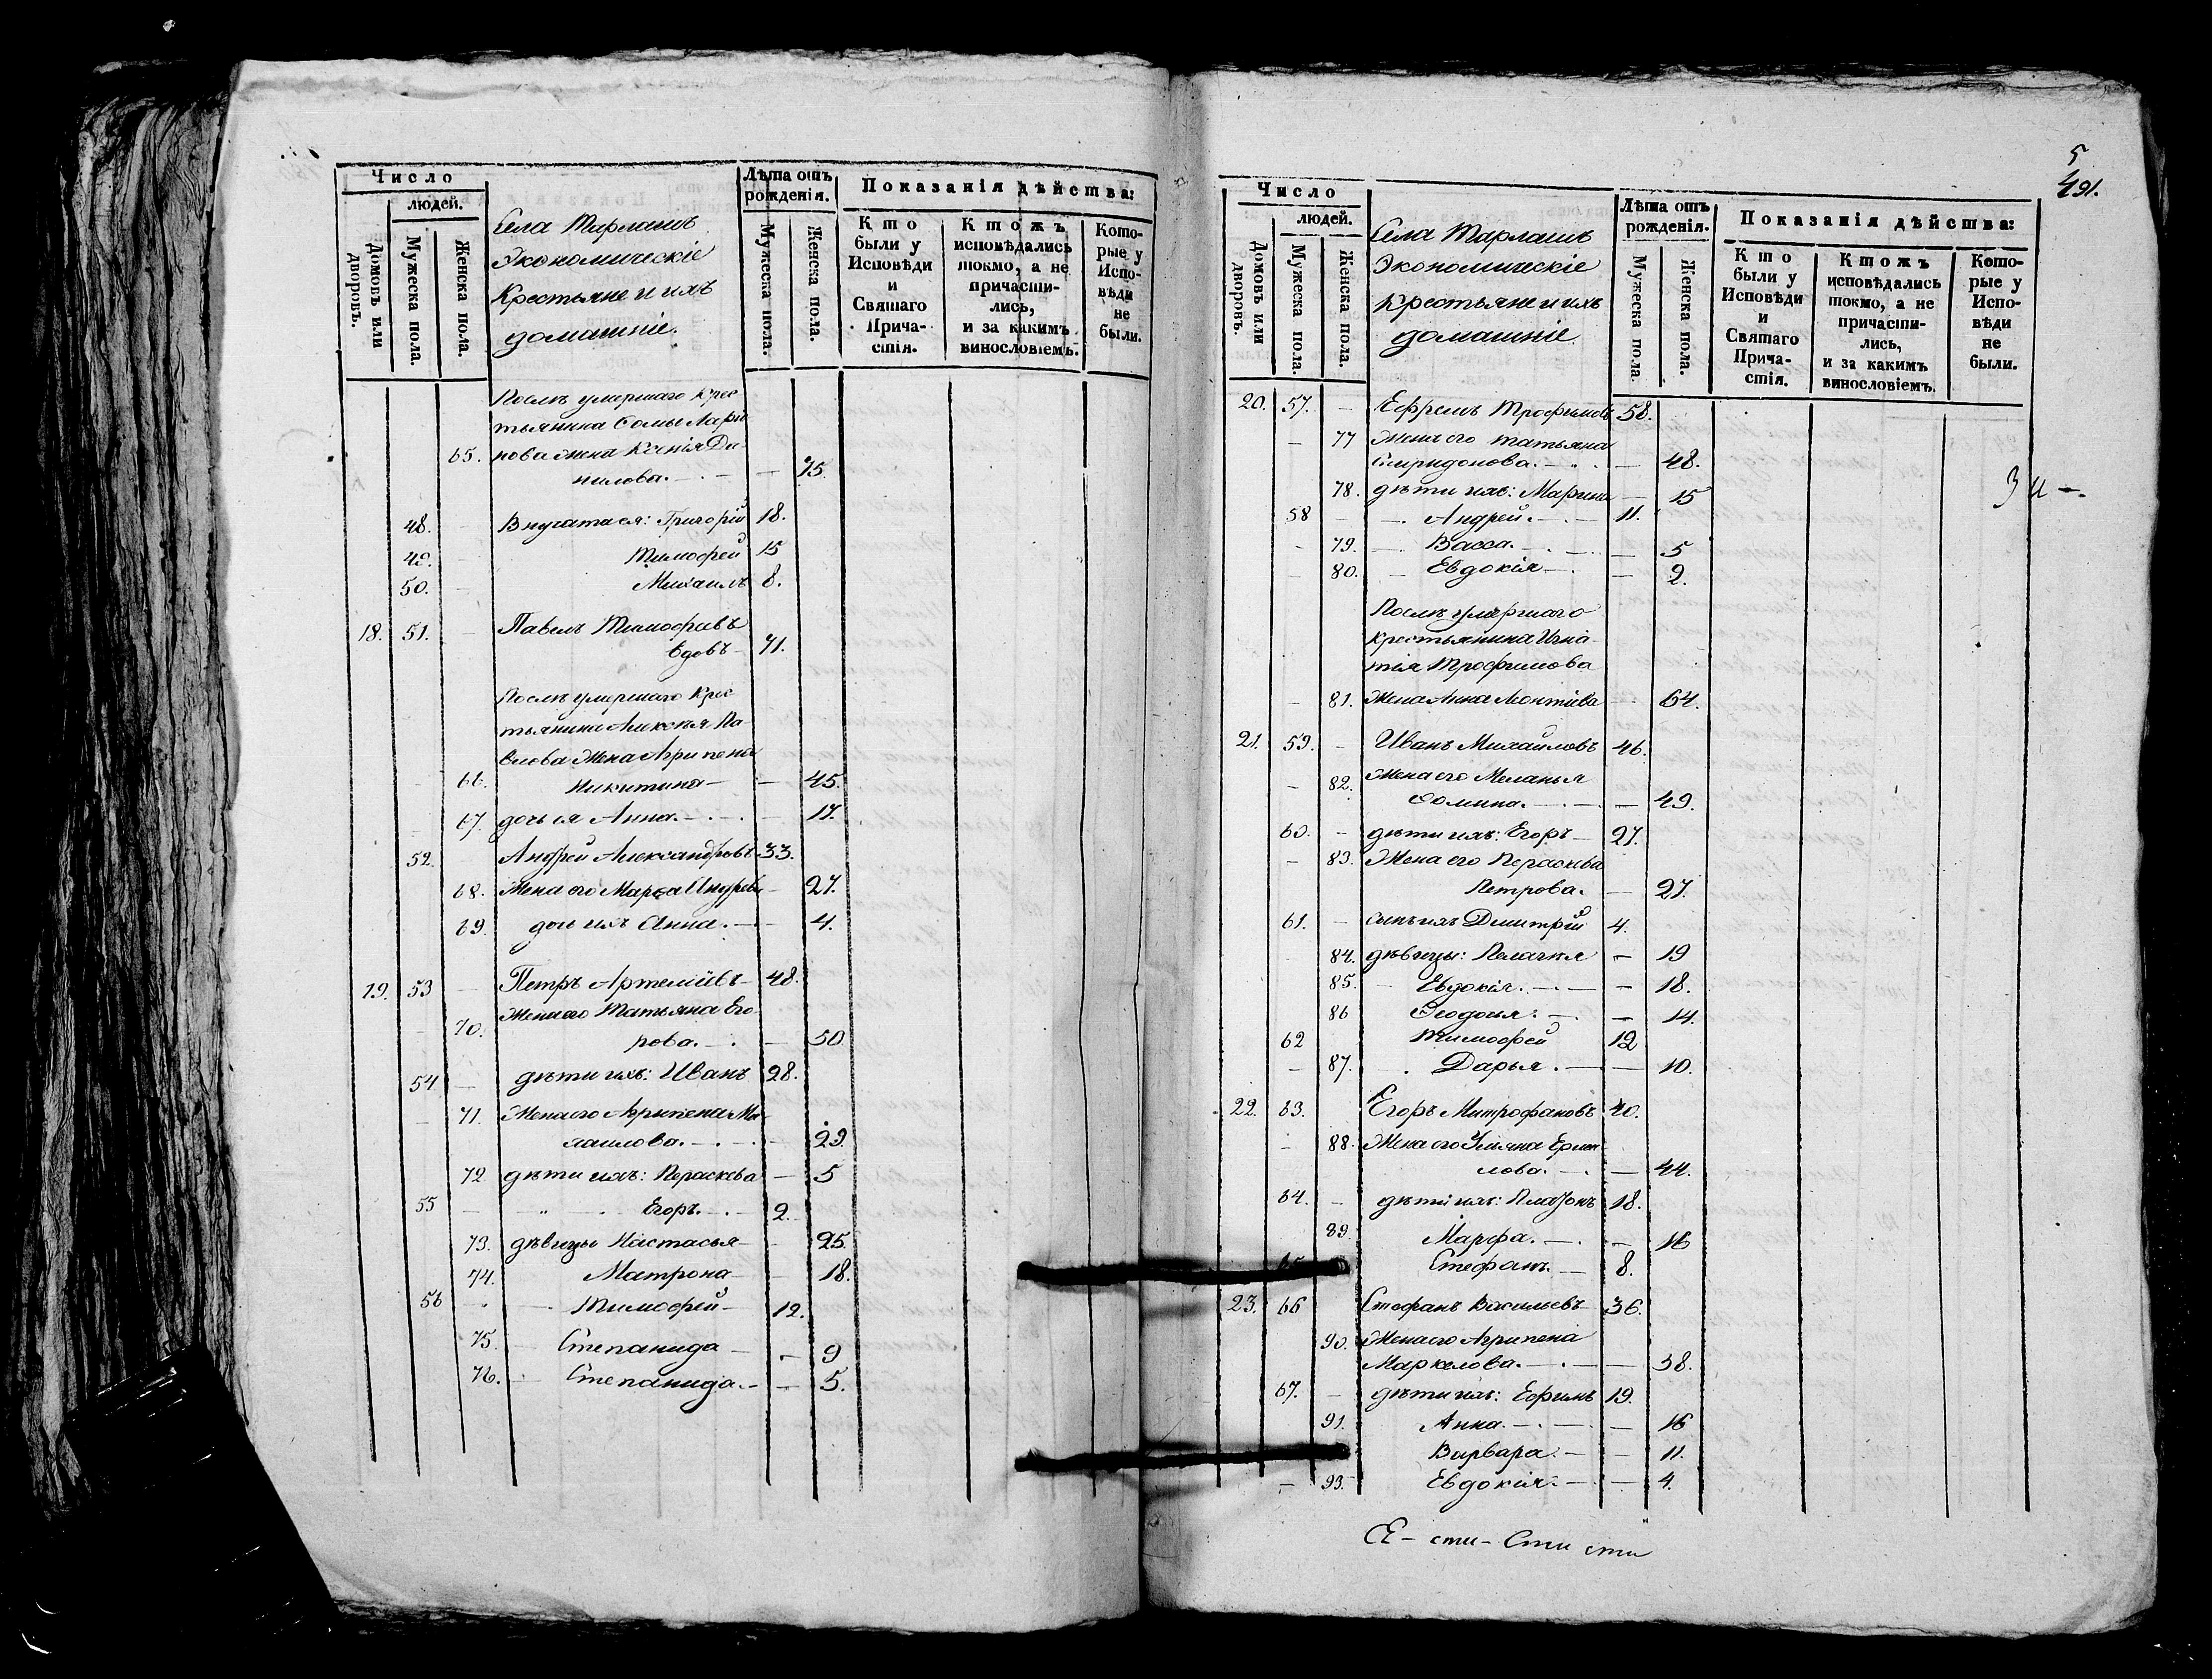 Число
людей.
Домовъ или дворовъ.
Мужеска пола.
Женска пола.
Села Тарлашъ
Экономическіе
Крестьяне и ихъ
домашніе.
Лѣта отъ рожденія.
Мужеска пола.
Женска пола.
Показанія дѣйства:
Кто были у Исповѣди и Святаго Причастія.
Ктожъ исповѣдались токмо, а не причастились, и за какимъ винословіемъ.
Которые у Исповѣди не были.
Послѣ умершаго крес
тьянина Фомы Лари
65. нова жена Ксенія Да-
нилова. — 75.
48. Внучата ея: Григорій 18.
49. Тимофей 15
50. Михаилъ 8.
18. 51. Павелъ Тимофеевъ
вдовъ 71.
Послѣ умершаго крес
тьянина Алексѣя Па
влова жена Агрипена
66. Никитина — 45.
67. дочь ея Анна. — 17.
52. Андрей Александровъ 33.
68. Жена его Марѳа — 27.
69. дочь ихъ Анна. — 4.
19. 53 Петръ Артеміевъ 48.
70. Жена его Татьяна Его
рова. — 50
54 — дѣти ихъ: Иванъ 28.
71. Жена его Агрипена Ми
хаилова. — 29.
72 дѣти ихъ: Пераскева — 5
55 — Егоръ. 2.
73. дѣвицы Настасья — 25.
74. Матрона — 18.
56 — Тимофей 12.
75. Степанида — 9
76. Степанида — 5.
5
491.
Число
людей.
Домовъ или дворовъ.
Мужеска пола.
Женска пола.
Села Тарлашъ
Экономическіе
Крестьяне и ихъ
домашніе.
Лѣта отъ рожденія.
Мужеска пола.
Женска пола.
Показанія дѣйства:
Кто были у Исповѣди и Святаго Причастія.
Ктожъ исповѣдались токмо, а не причастились, и за какимъ винословіемъ.
Которые у Исповѣди не были.
20. 57. — Ефремъ Трофимовъ 58.
— 77 Жена его Татьяна
Спиридонова. — 48.
78. дѣти ихъ: Марина — 15
58 — Андрей. — 11.
79. Васса. — 5
80. Евдокія — 2.
Послѣ умершаго
крестьянина Игна
тія Трофимова
81. Жена Анна Леонтіева — 64.
21. 59. — Иванъ Михайловъ 46.
— 82. Жена его Меланья
Фомина. — 49.
60. — дѣти ихъ: Егоръ 27.
— 83. Жена его Пераскева
Петрова. — 27.
61. — сынъ ихъ Дмитрій 4.
84. дѣвицы: Пелагея — 19
85. Евдокія. — 18.
86 Ѳеодосья. — 14.
62 Тимофей 12
— 87. Дарья. — 10.
22. 63. Егоръ Митрофановъ 40.
— 88. Жена его Ульяна Ермо
лова. — 44.
64. — дѣти ихъ: Платонъ 18.
89. Марфа. — 16
65 Стефанъ. — 8.
23. 66 Стефанъ Васильевъ 36.
90. Жена его Агрипена
Маркелова. — 38.
67. — дѣти ихъ: Ефимъ 19.
91. Анна. — 16
Варвара — 11.
— 93. Евдокія. — 4.